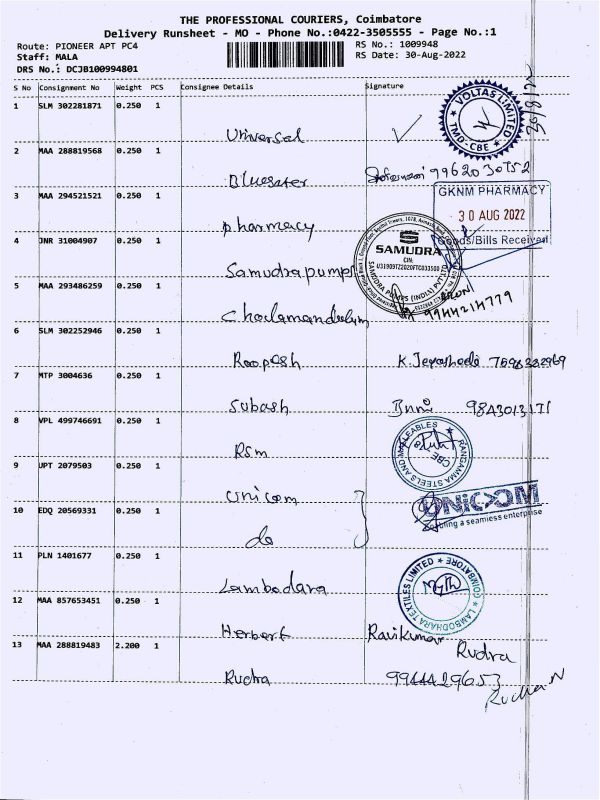 THE PROFESSIONAL COURIERS, Coimbatore
Delivery Runsheet - MO - Phone No.:0422-3505555 - Page No.:1
Route: PIONEER APT PC4
RS No.: 1009948
Staff: MALA
RS Date: 30-Aug-2022
DRS No.: DCJB100994801
S No Consignment No Weight PCS Consignee Details Signature
1 SLM 302281871 0.250 1
VOLTAS LIMITED
TMD-CBE
30/8/22
Universal
2 MAA 288819568 0.250 1
Bluestar 9962030752
3 MAA 294521521 0.250 1
GKNM PHARMACY
30 AUG 2022
Goods/Bills Received
pharmacy
4 JNR 31004907 0.250 1
SAMUDRA
CIN:
SAMUDRA PUMPS (INDIA) PVT LTD
Samudra pumps
5 MAA 293486259 0.250 1
ARUN
9944214779
Cholamandalam
6 SLM 302252946 0.250 1
Roopesh K. Jeyashada 7598332969
7 MTP 3004636 0.250 1
Subash 9843013171
8 VPL 499746691 0.250 1
RANGAMMA STEELS AND MALLEABLES
CBE
Rsm
9 UPT 2079503 0.250 1
Unicom
10 EDQ 20569331 0.250 1
UNICOM
ling a seamless enterprise
do
11 PLN 1401677 0.250 1
LAMBODHARA TEXTILES LIMITED
COIMBATORE
Lambodara
12 MAA 857653451 0.250 1
Herbert Ravikumar
13 MAA 288819483 2.200 1
Rudra
Rudra 9944429653
Rudra N